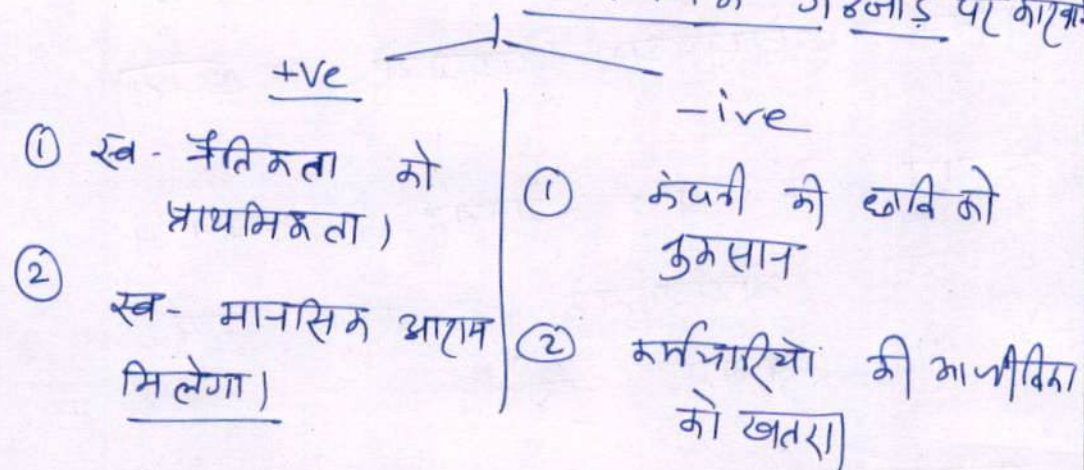 गठजोड़ पर
+ve
-ive
① स्व - नैतिकता को
प्राथमिकता)
② स्व - मानसिक आराम
मिलेगा।
① कंपनी की छवि को
नुकसान
② कर्मचारियों की आजीविका
को खतरा